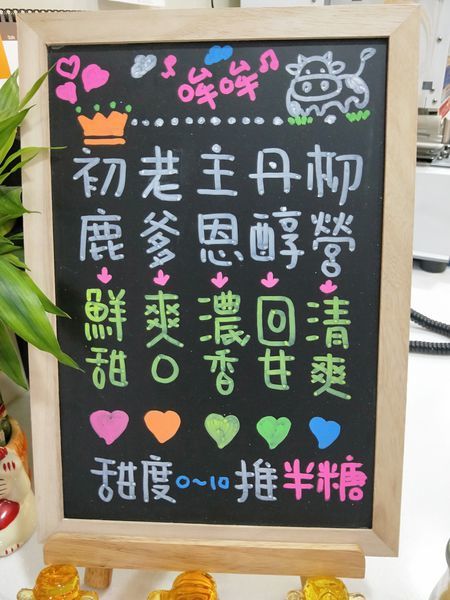 哞哞
初鹿 老爹 主恩 丹醇 柳營
鮮甜 爽口 濃香 回甘 清爽
甜度0~10推半糖